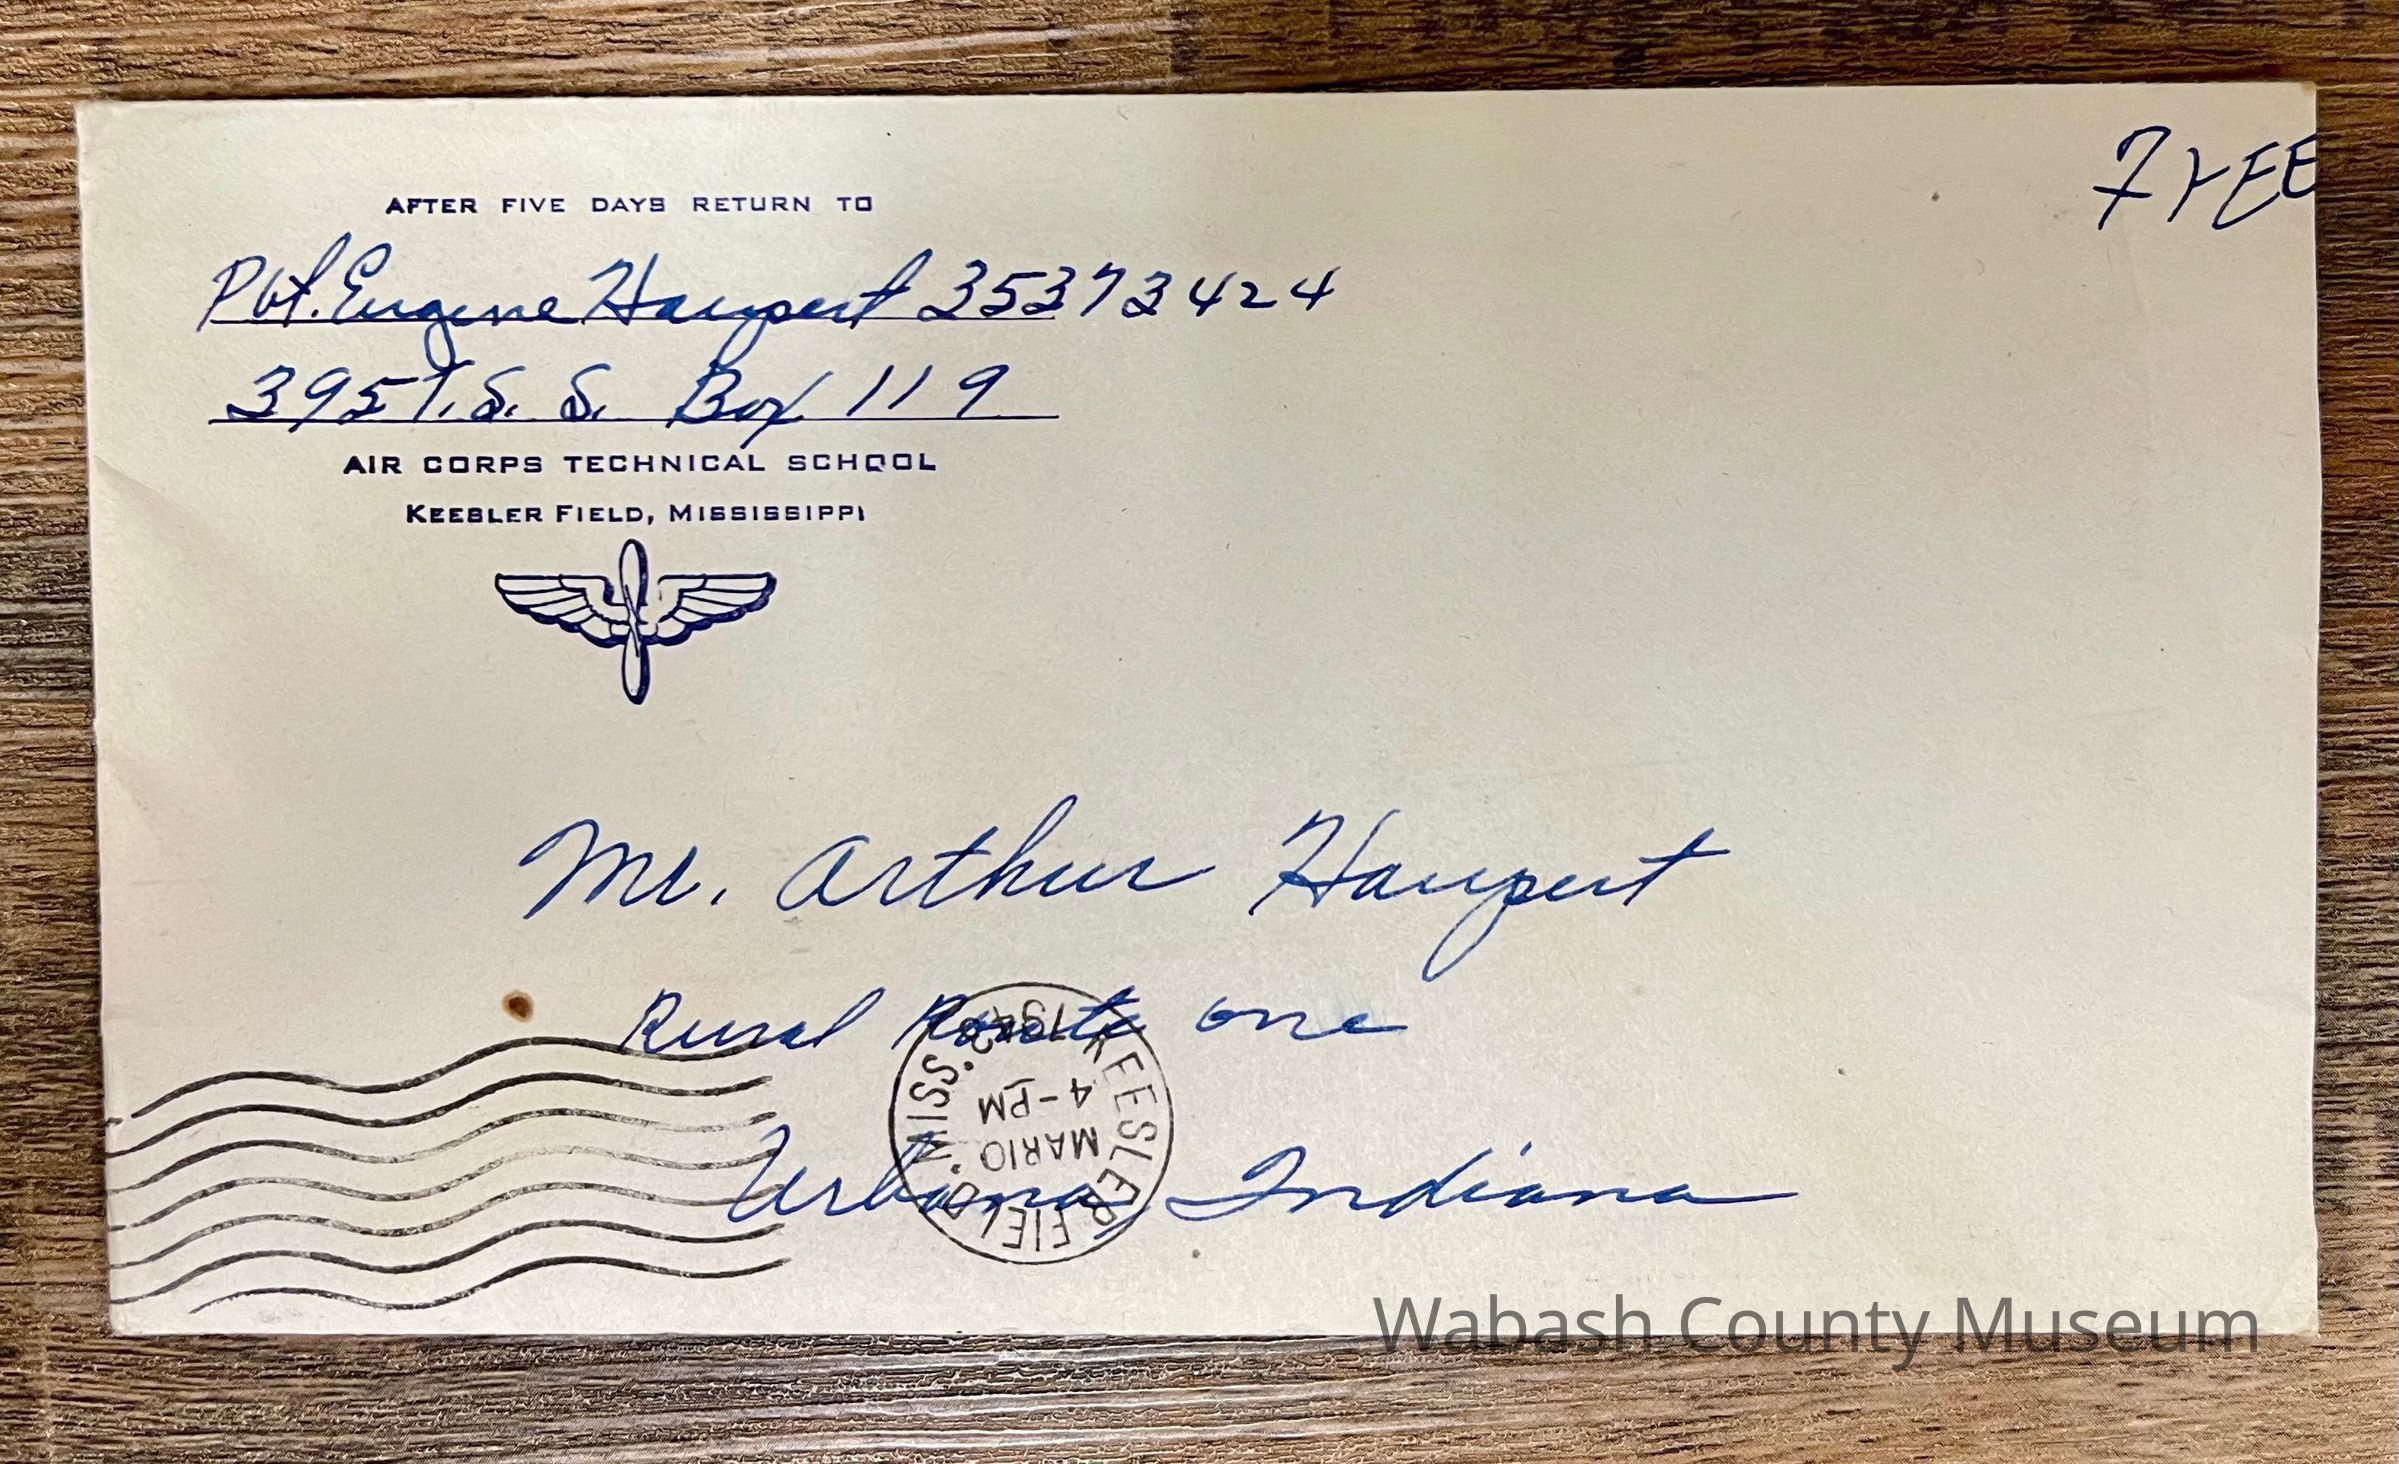 FrEE
AFTER FIVE DAYS RETURN TO
Pvt. Eugene Haupert 35373424
395 T. S. S. Box 119
AIR CORPS TECHNICAL SCHOOL
KEESLER FIELD, MISSISSIPPI
Mr. Arthur Haupert
Rural Route one
Urbana, Indiana
KEESLER FIELD. MISS.
MAR 10
4-PM
1943
Wabash County Museum